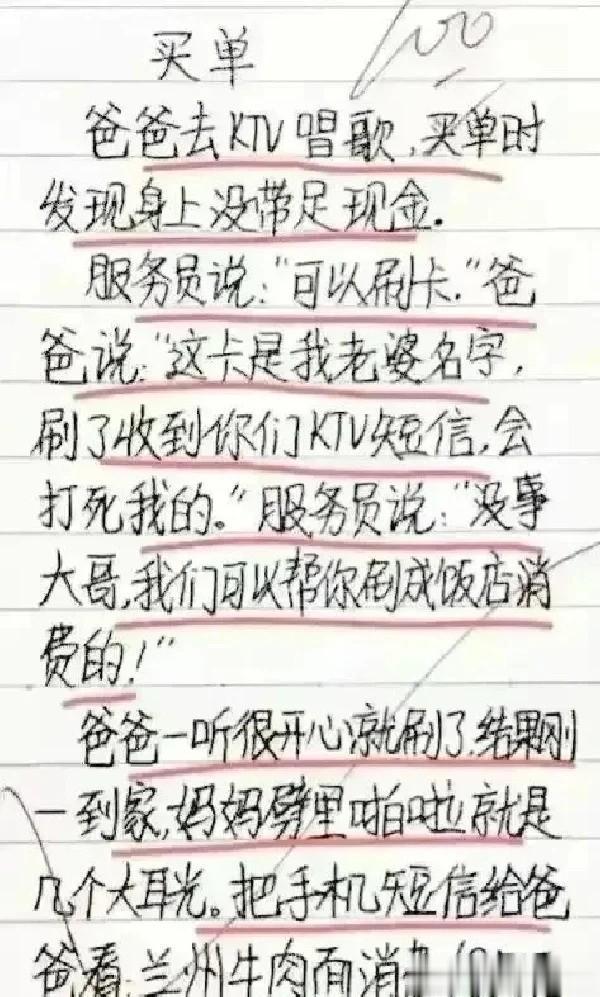 100
买单
爸爸去KTV唱歌,买单时
发现身上没带足现金.
服务员说:"可以刷卡."爸
爸说:"这卡是我老婆名字,
刷了收到你们KTV短信,会
打死我的。"服务员说:"没事
大哥,我们可以帮你刷成饭店消
费的!"
爸爸一听很开心就刷了.结果刚
一到家,妈妈劈里啪啦就是
几个大耳光。把手机短信给爸
爸看,兰州牛肉面消